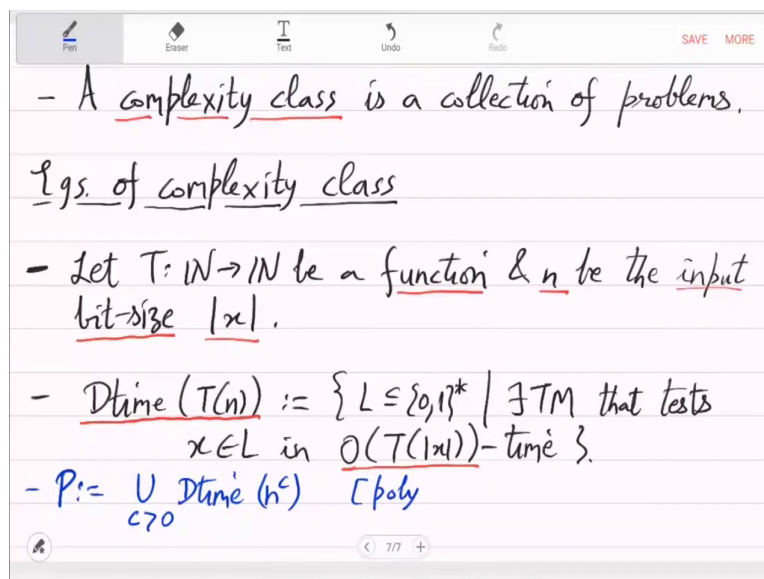 Pen Eraser Text Undo Redo SAVE MORE
- A complexity class is a collection of problems.
Egs. of complexity class
- Let T: ℕ→ℕ be a function & n be the input
bit-size |x|.
- Dtime (T(n)) := { L ⊆ {0,1}* | ∃TM that tests
x∈L in O(T(|x|))-time }.
- P := ∪ Dtime (n^c) [poly
c>0
7/7